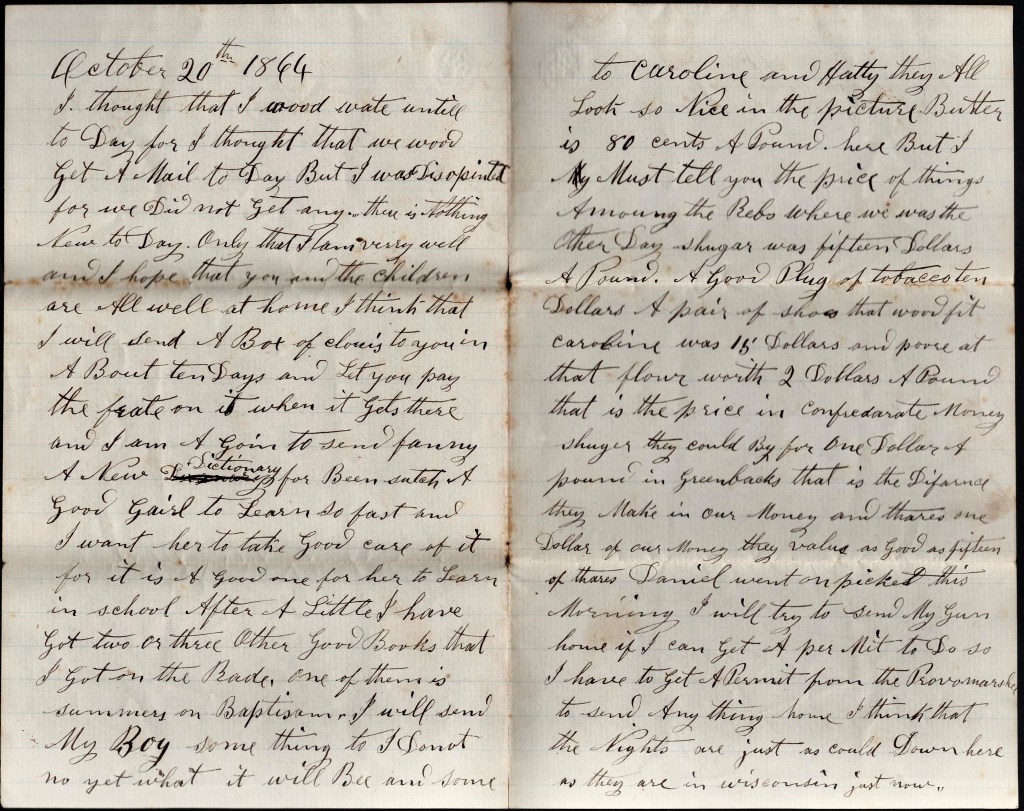 October 20th 1864
I. thought that I wood wate untill
to Day for I thought that we wood
Get A Mail to Day But I was Disopinted
for we Did not Get any. there is Nothing
New to Day. Only that I am verry well
and I hope that you and the children
are All well at home I think that
I will send A Box of clouis to you in
A Bout ten Days and Let you pay
the frate on it when it Gets there
and I am A Goin to send fanny
A New Dictionary for Been sutch A
Good Gairl to Learn so fast and
I want her to take Good care of it
for it is A Good one for her to Learn
in school After A Little I have
Got two or three Other Good Books that
I Got on the Rade. one of them is
summers on Baptisam. I will send
My Boy some thing to I Donot
no yet what it will Bee and some
to Caroline and Hatty they All
Look so Nice in the picture Butter
is 80 cents A Pound. here But I
Must tell you the price of things
Amoung the Rebs where we was the
Other Day shugar was fifteen Dollars
A Pound. A Good Plug of tobacco ten
Dollars A pair of shoos that wood fit
caroline was 15 Dollars and poore at
that flour worth 2 Dollars A Pound
that is the price in Confredarate Money
shuger they could By for One Dollar A
pound in Greenbacks that is the Difarnce
they Make in our Money and thares one
Dollar of our Money they value as Good as fifteen
of thares Daniel went on picket this
Morning I will try to send My Gun
home if I can Get A per Mit to Do so
I have to Get A Permit from the Provomarshel
to send Any thing home I think that
the Nights are just as could Down here
as they are in wisconsin just now..